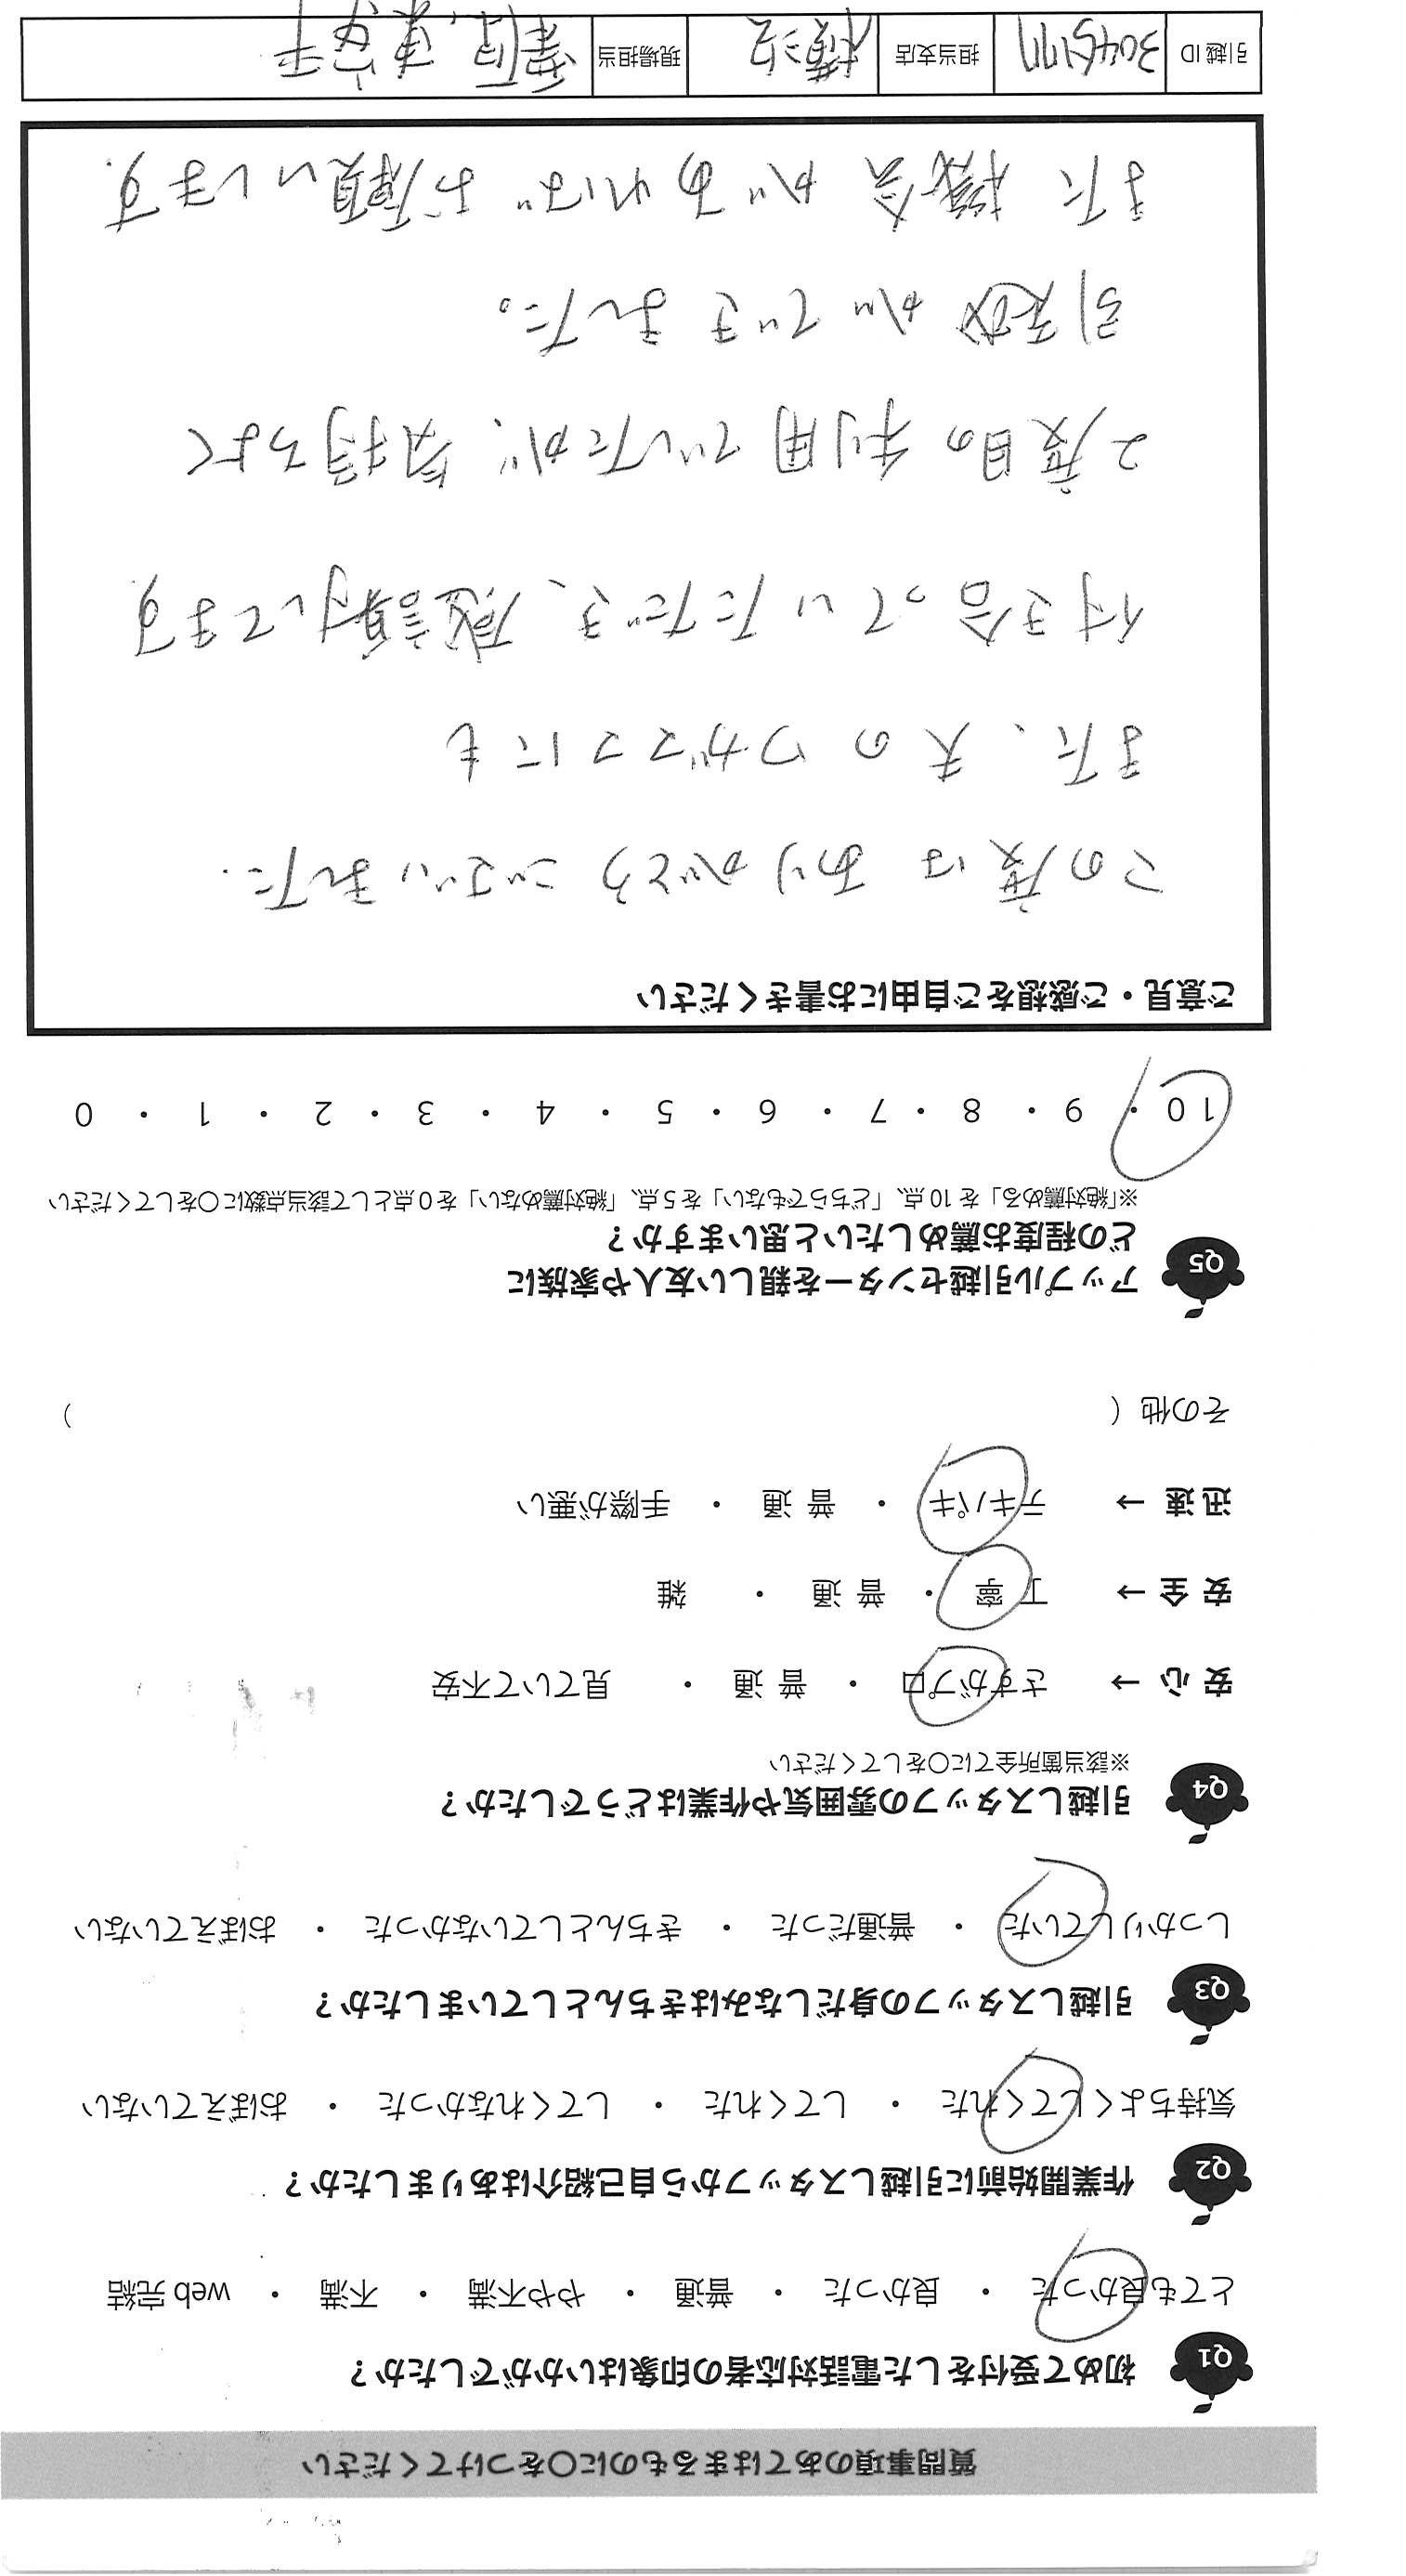 質問事項のあてはまるものに〇をつけてください
Q1 初めて受付をした電話対応者の印象はいかがでしたか？
とても良かった ・ 良かった ・ 普通 ・ やや不満 ・ 不満 ・ web 完結
Q2 作業開始前に引越しスタッフから自己紹介はありましたか？
気持ちよくしてくれた ・ してくれた ・ してくれなかった ・ おぼえていない
Q3 引越しスタッフの身だしなみはきちんとしていましたか？
しっかりしていた ・ 普通だった ・ きちんとしていなかった ・ おぼえていない
Q4 引越しスタッフの雰囲気や作業はどうでしたか？
※該当箇所全てに〇をしてください
安心→ さすがプロ ・ 普通 ・ 見ていて不安
安全→ 丁寧 ・ 普通 ・ 雑
迅速→ テキパキ ・ 普通 ・ 手際が悪い
その他（ ）
Q5 アップル引越センターを親しい友人や家族に
どの程度お薦めしたいと思いますか？
※「絶対薦める」を10点、「どちらでもない」を5点、「絶対薦めない」を0点として該当点数に〇をしてください
10 ・ 9 ・ 8 ・ 7 ・ 6 ・ 5 ・ 4 ・ 3 ・ 2 ・ 1 ・ 0
ご意見・ご感想をご自由にお書きください
この度は ありがとうございました.
また、夫のワガママにも
付き合っていただき、感謝してます
2度目の利用でしたが、気持ちよく
引越ができました。
また機会があればお願いします.
引越ID 担当支店 横浜 現場担当